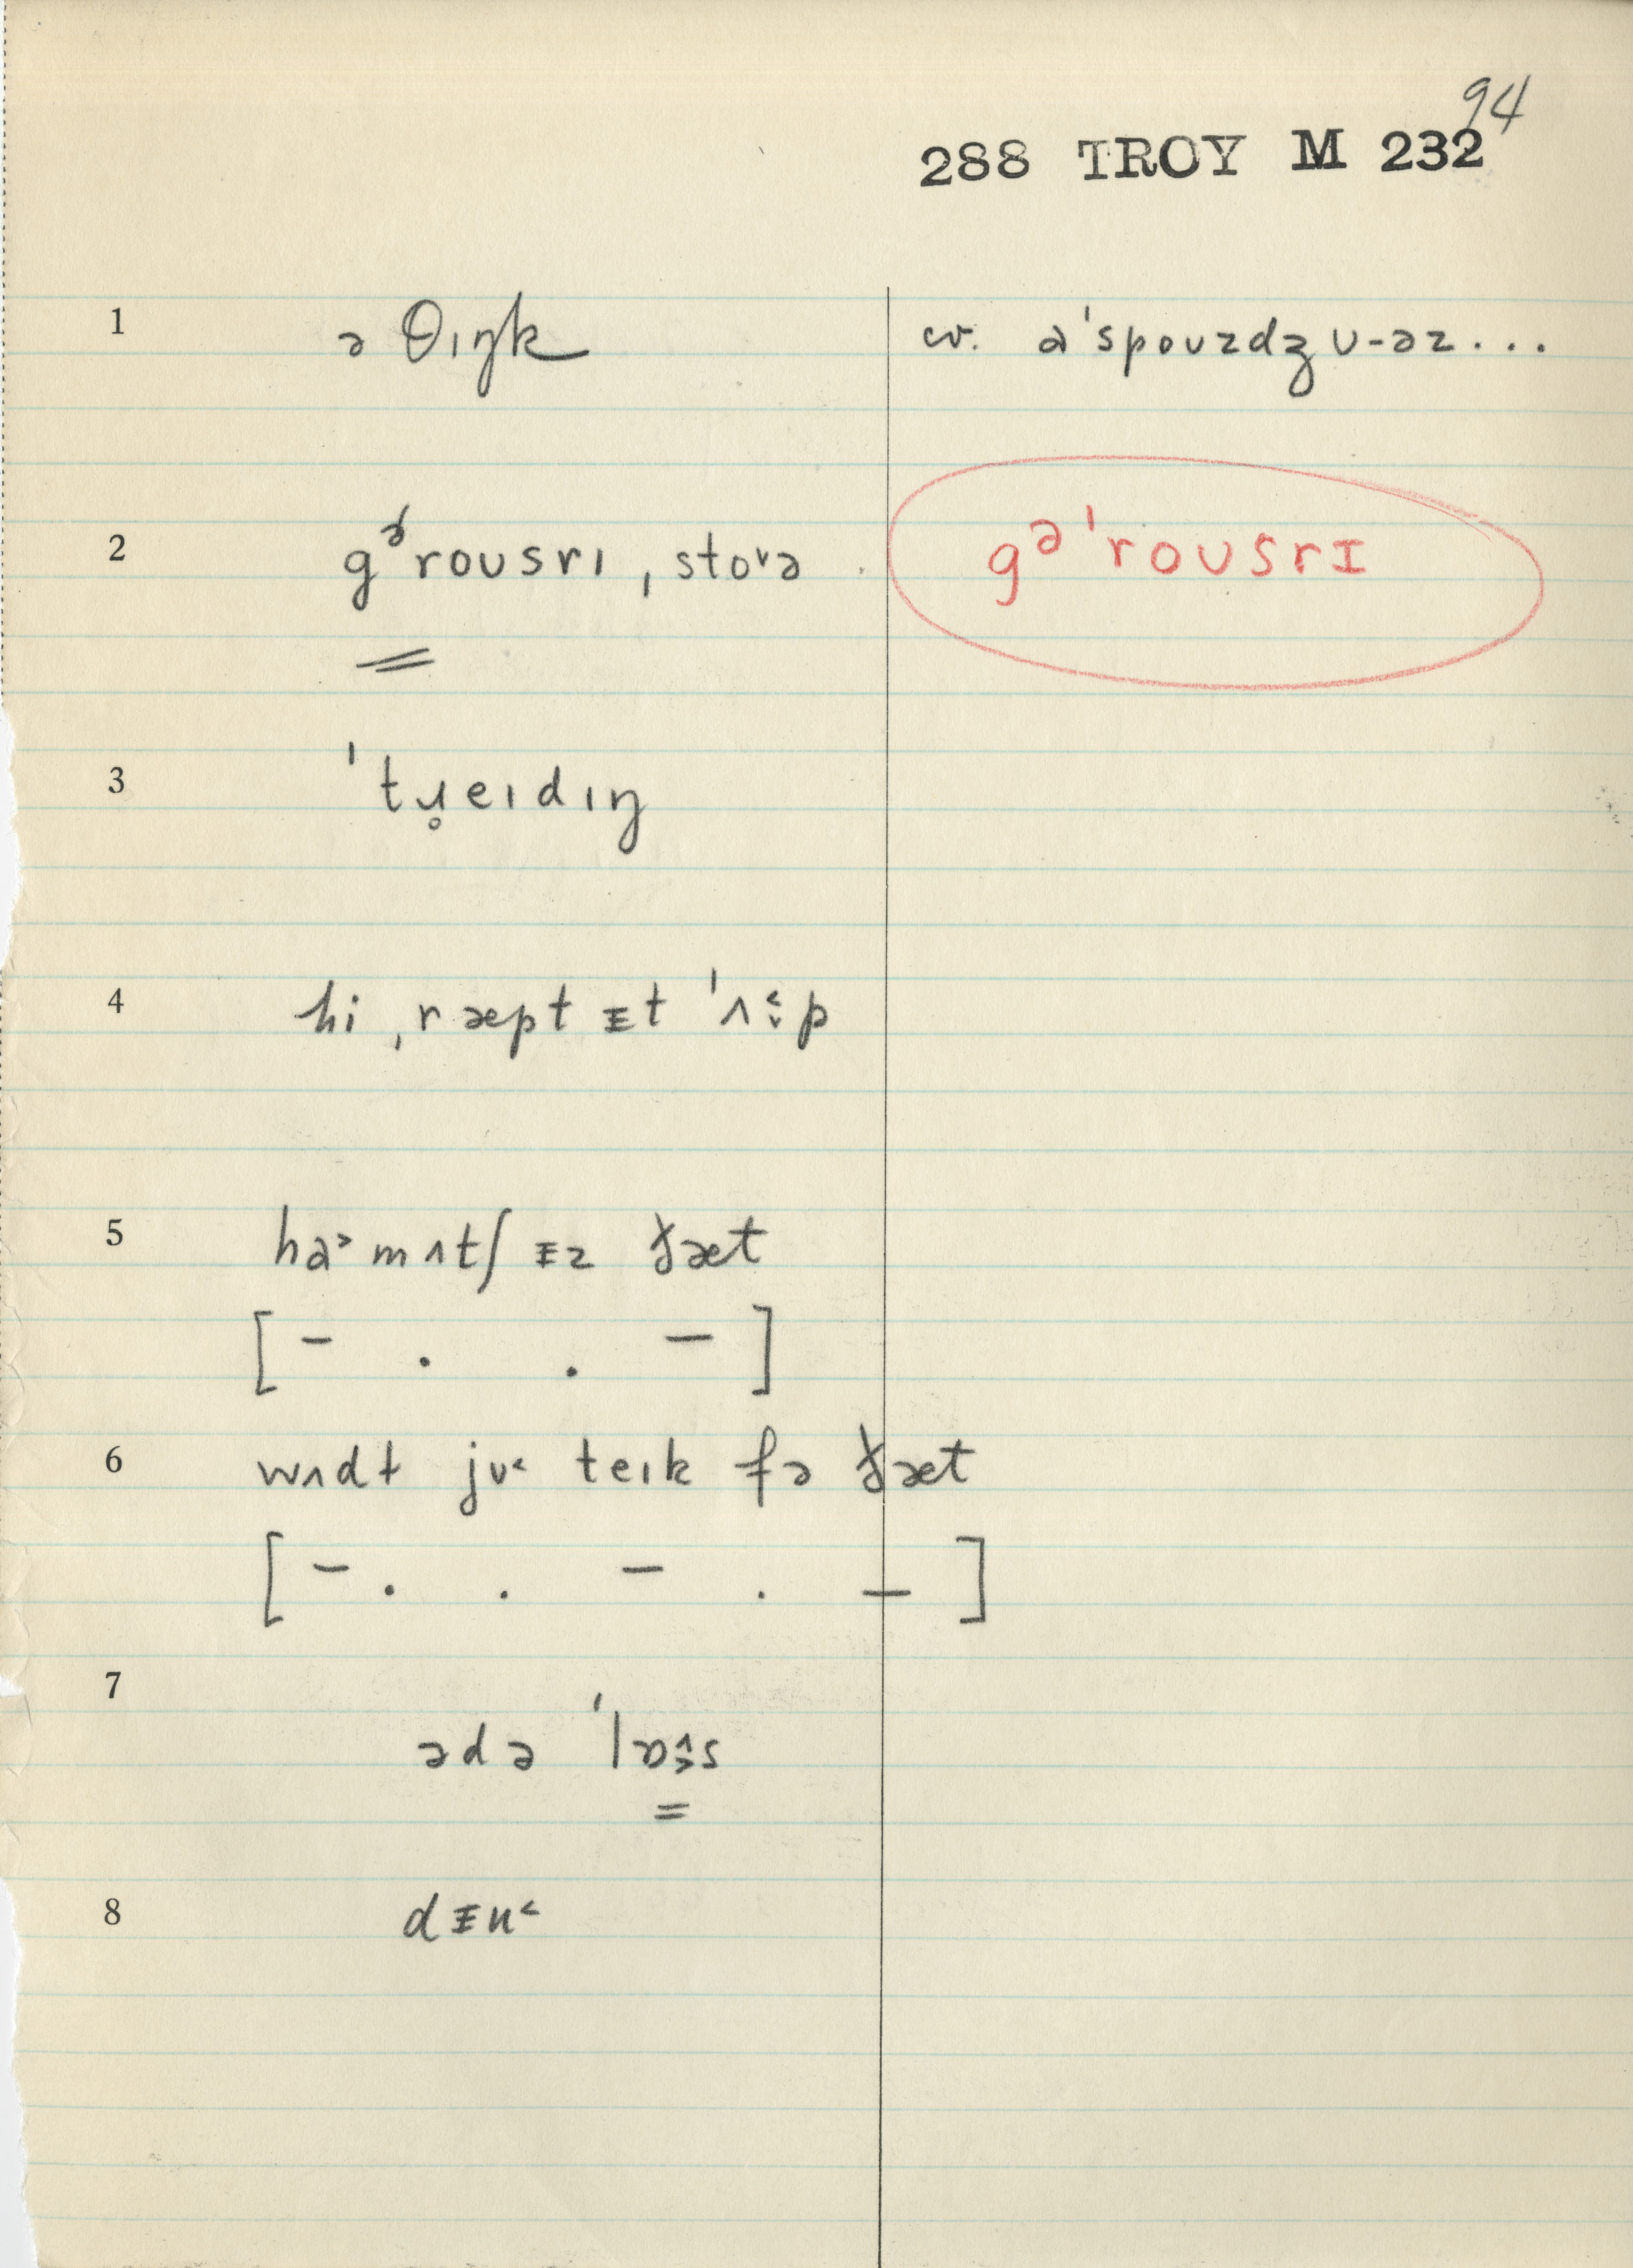 94
288 TROY M 232
1 ə θɪŋk cv. a'spouzdʒ ʊ-əz...
2 gᵊ́roʊsrɪ, stoᵛə gə'roʊsrɪ
3 'tɹ̥eɪdɪŋ
4 hi ˌræpt ᵻt 'ʌ˂̬p
5 ha˃ mʌtʃ ᵻz ðæt
[ – . . – ]
6 wʌdt jʊ˂ teɪk fə ðæt
[ – . . – . – ]
7
ədə 'lɒ˄˃s
8 dᵻu˂